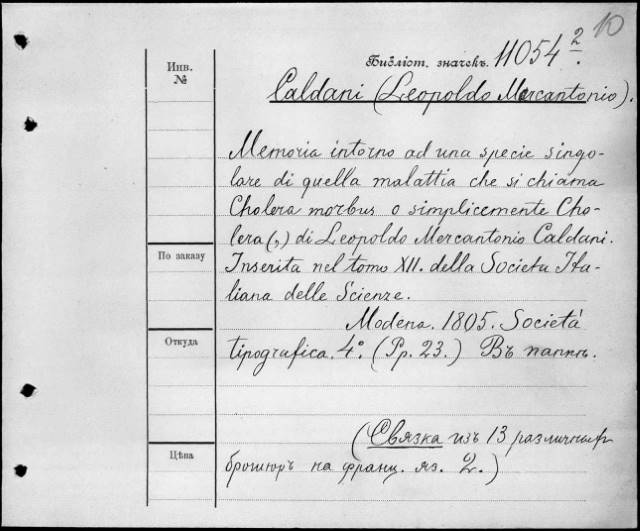 10
Библіот. значекъ. 11054 2.
Инв.
№
Caldani (Leopoldo Mercantonio).
Memoria intorno ad una specie singo-
lare di quella malattia che si chiama
Cholera morbus o simplicemente Cho-
lera (,) di Leopoldo Mercantonio Caldani.
По заказу
Inserita nel tomo XII. della Societa Ita-
liana delle Scienze.
Modena. 1805. Società
Откуда
tipografica. 4°. (Pp. 23.) Въ папкѣ.
(Связка изъ 13 различныхъ
Цѣна
брошюръ на франц. яз. 2.)